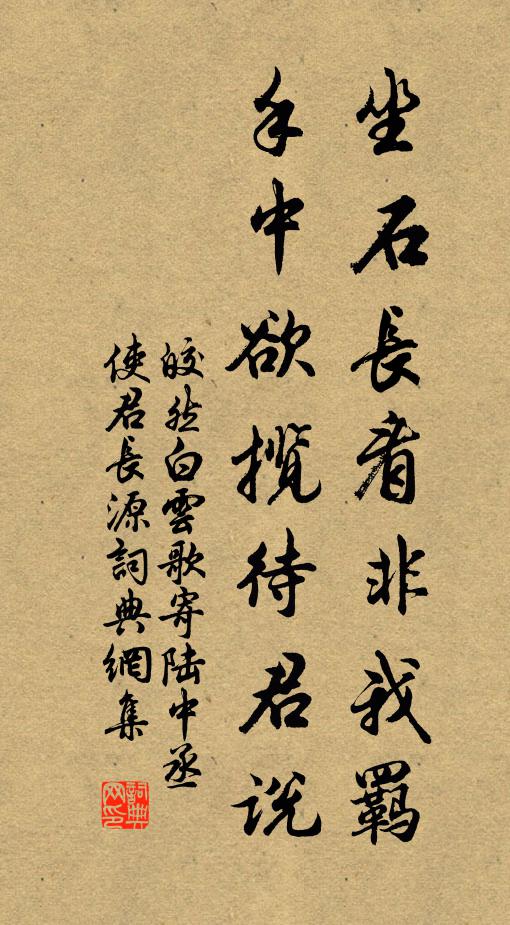 坐石長看非我羈
手中欲攬待君說
皎然白雲歌寄陸中丞
使君長源詞典網集
詞典
网印